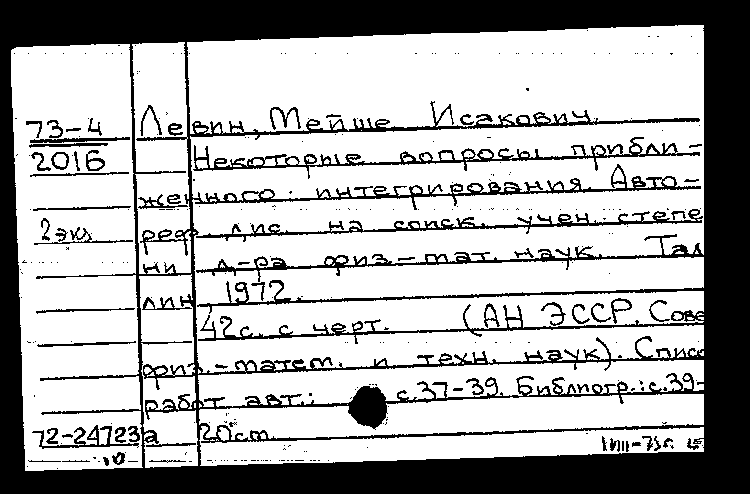 73-4 Левин, Мейше Исакович.
2016 Некоторые вопросы прибли-
женного интегрирования. Авто-
2 экз реф. дис. на соиск. учен. степе
ни д-ра физ.-мат. наук. Тал
лин, 1972.
42с. с черт. (АН ЭССР. Сове
физ.-матем. и техн. наук). Списо
работ авт.: с.37-39. Библиогр.: с.39-
72-24723а 20см.